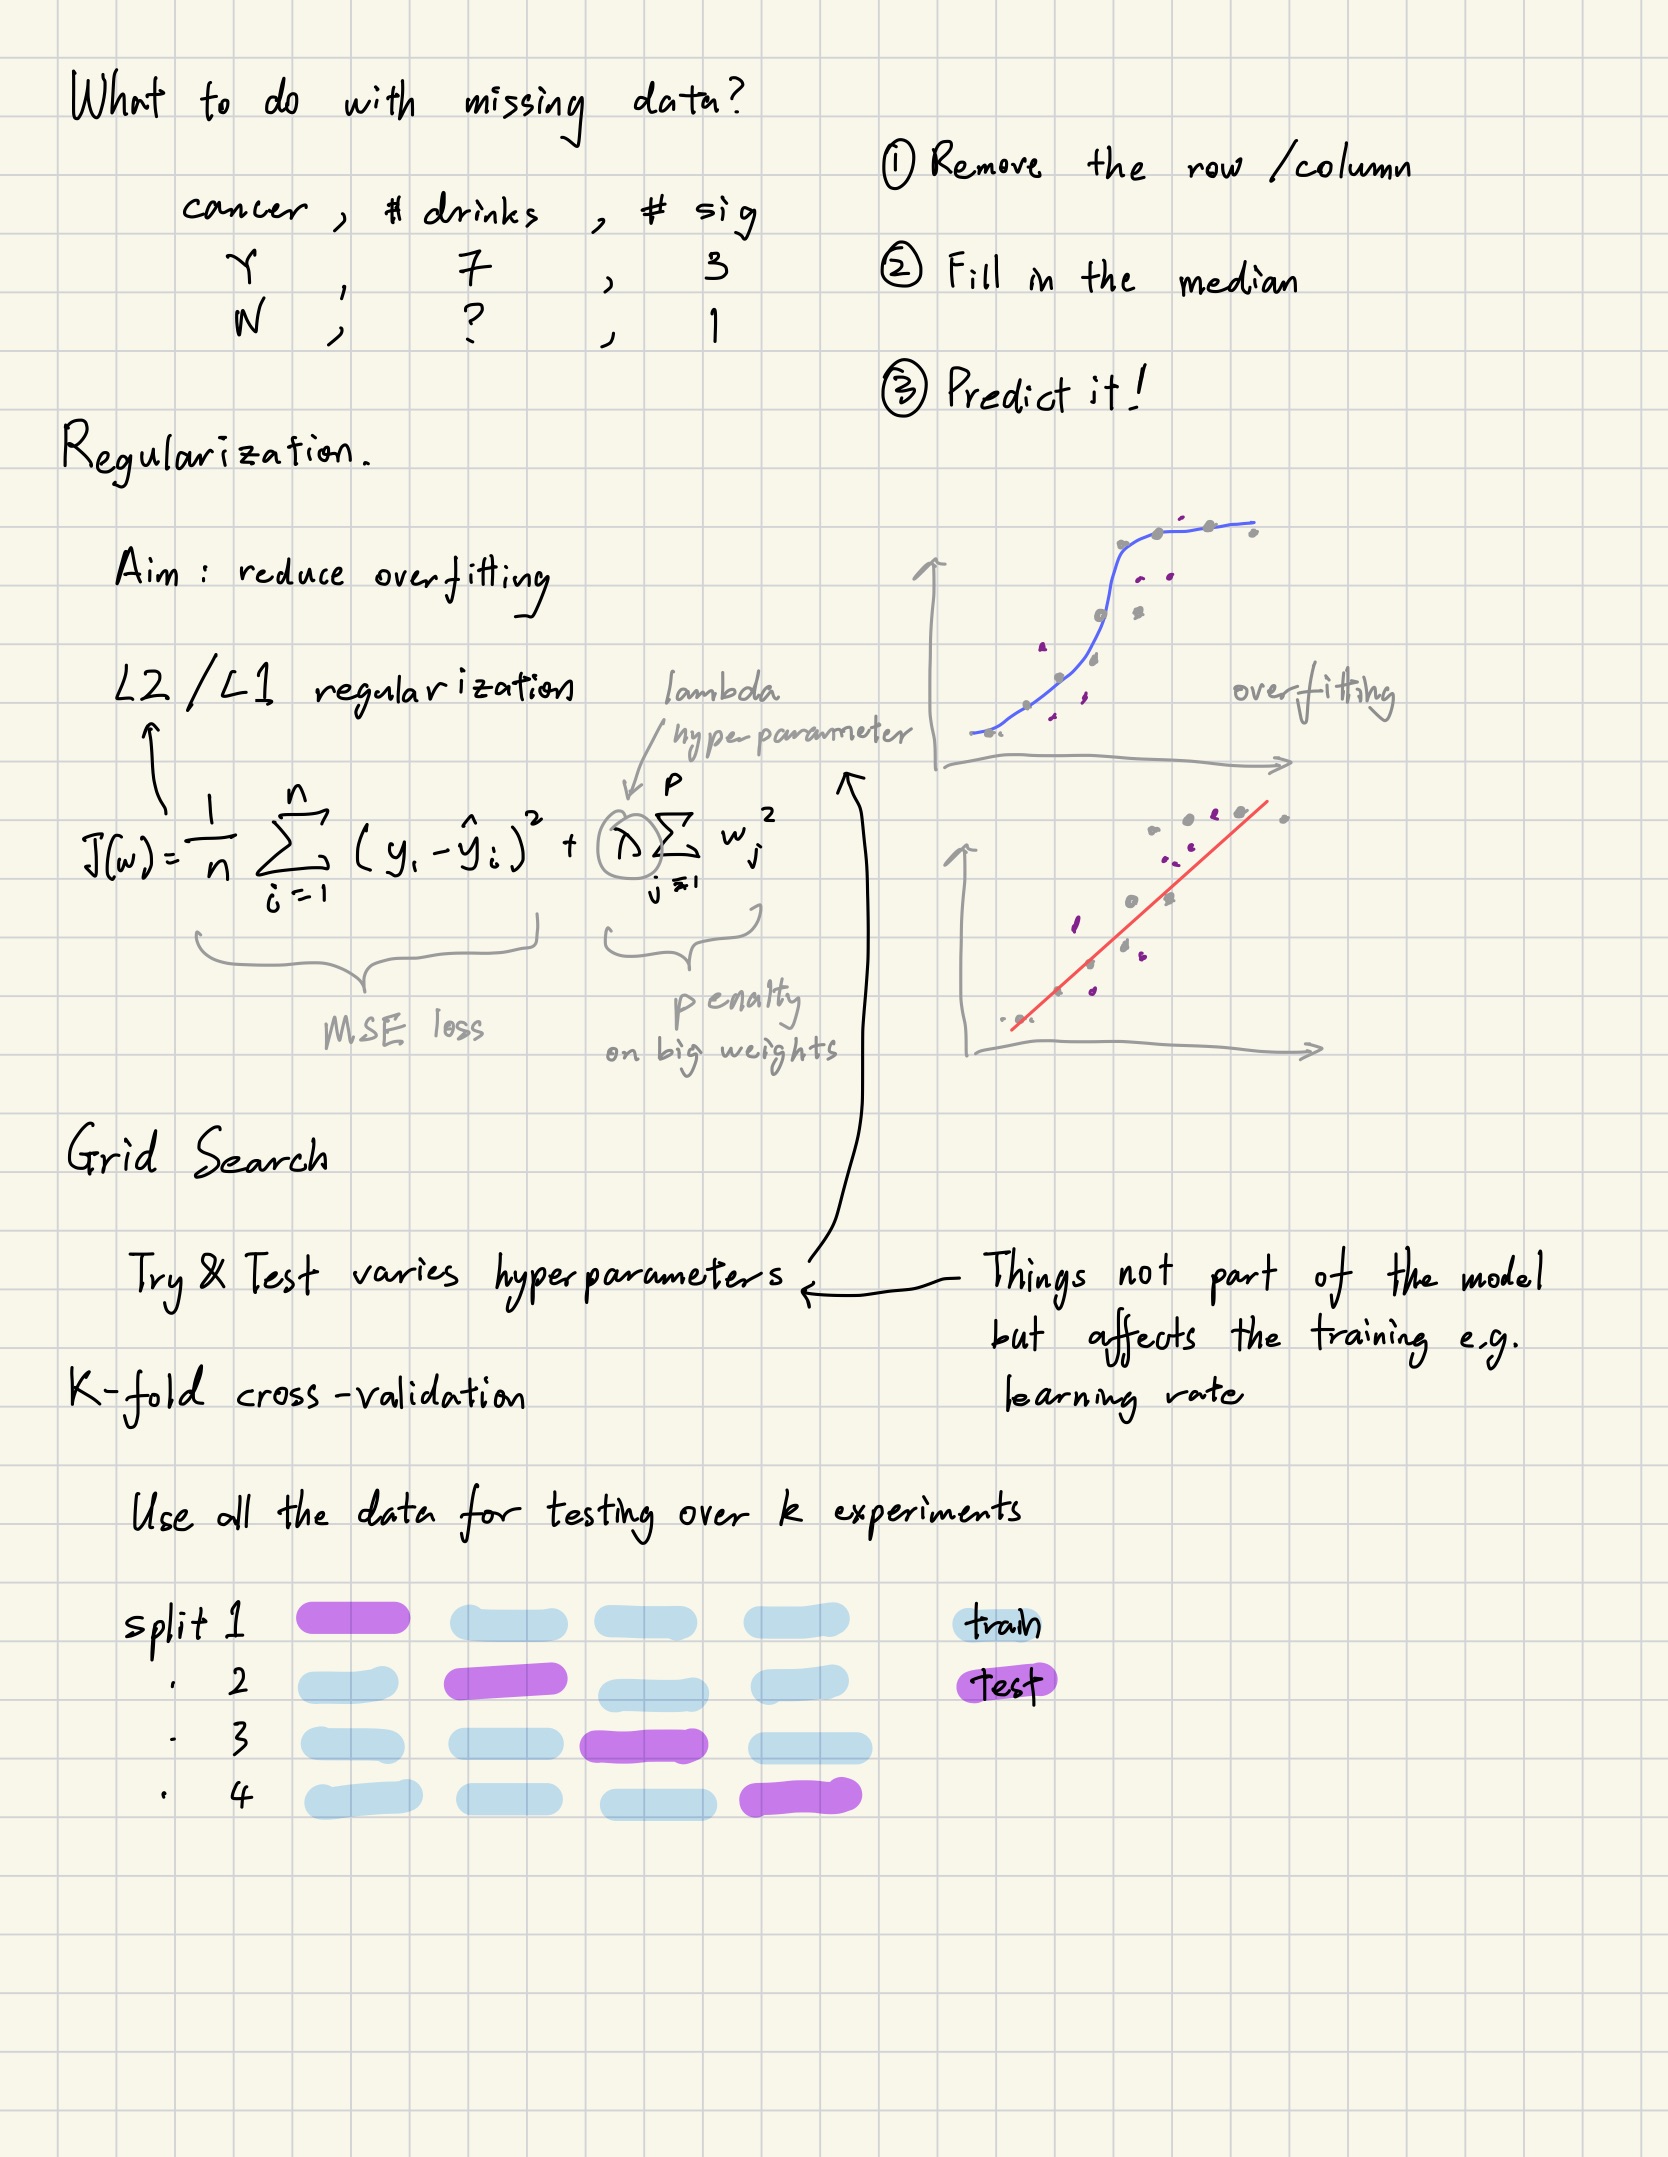 What to do with missing data?
cancer , # drinks , # sig
Y , 7 , 3
N , ? , 1
① Remove the row /column
② Fill in the median
③ Predict it!
Regularization.
Aim : reduce overfitting
L2 / L1 regularization
lambda
hyperparameter
J(w) = 1/n Σ_{i=1}^{n} (y_i - ŷ_i)² + λ Σ_{j=1}^{p} w_j²
MSE loss
penalty
on big weights
overfitting
Grid Search
Try & Test varies hyperparameters
Things not part of the model
but affects the training e.g.
learning rate
K-fold cross-validation
Use all the data for testing over k experiments
split 1
· 2
· 3
· 4
train
test